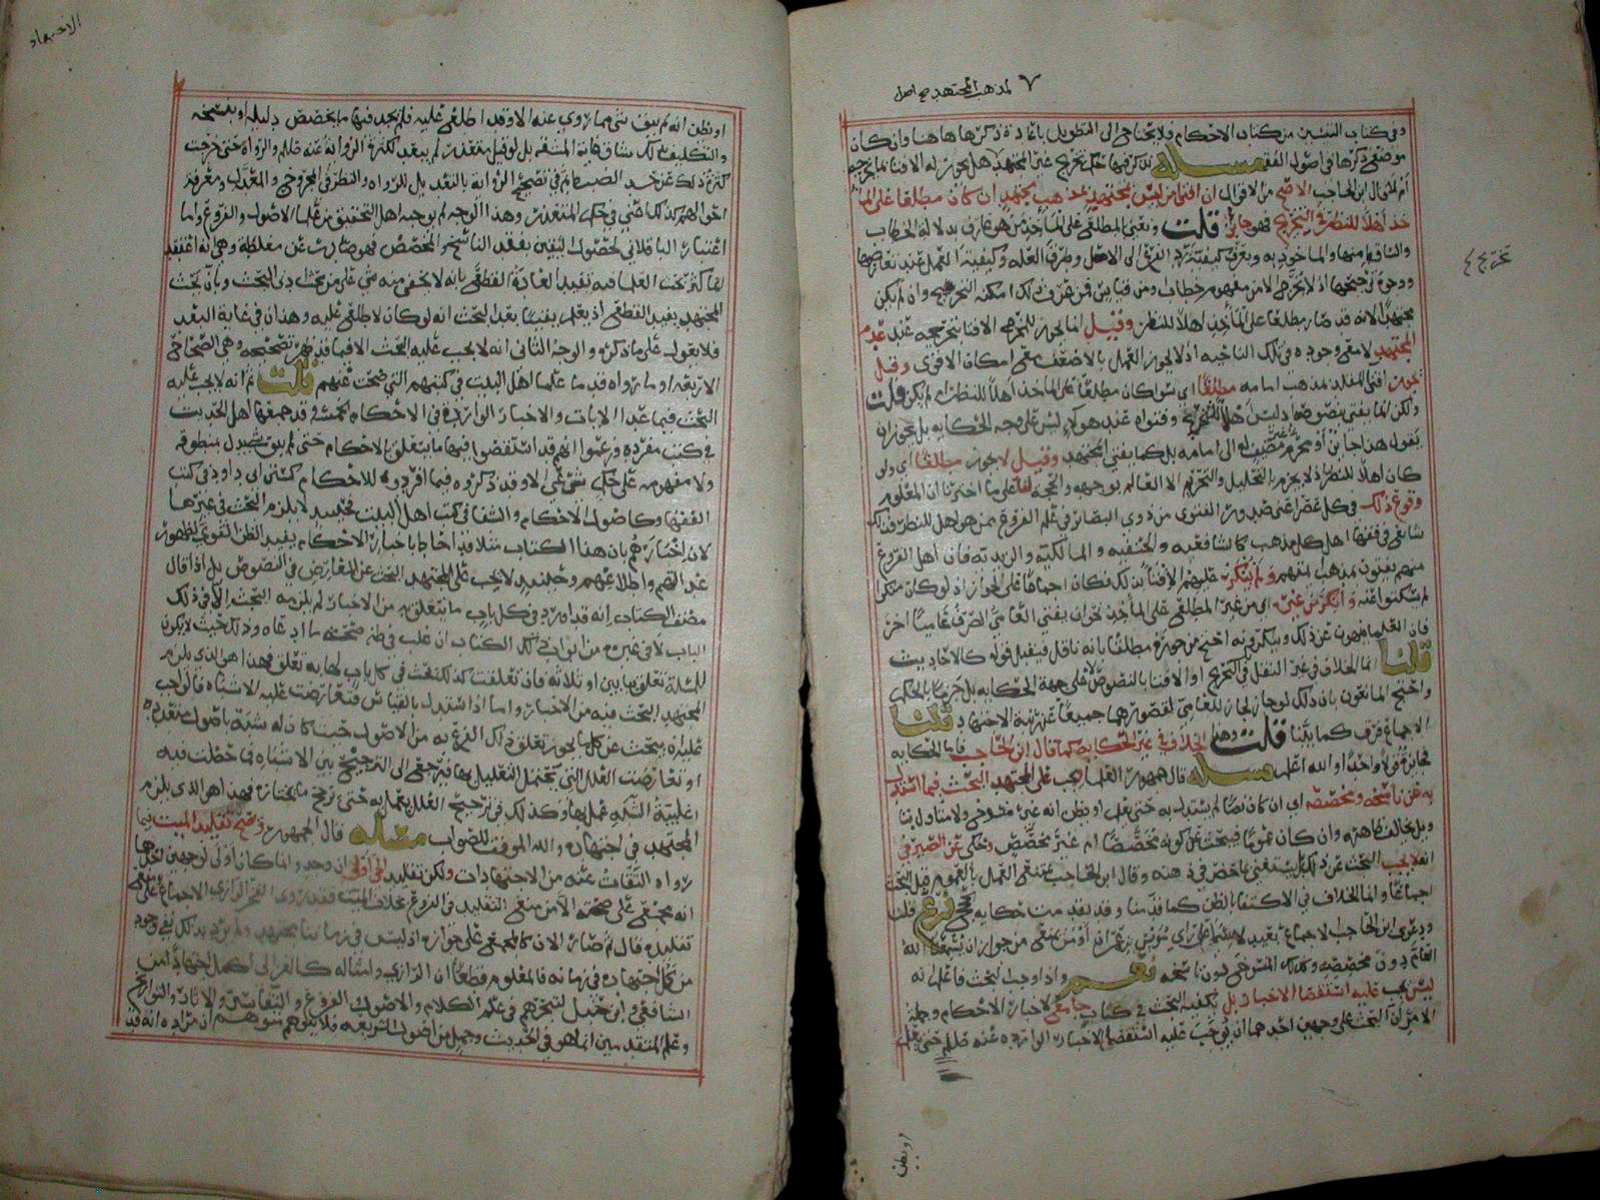 لمذهب المجتهد صح اصل
وفي كتاب التبيين من كتاب الاحكام فلا يحتاج الى التطويل باعادة ذكرها هاهنا وان كان
موضع ذكرها في اصول الفقه مسله تذكر فيها حكم تخريج غير المجتهد هل يجوز له الافتا بما يخرجه
ام لا قال ابن الحاجب الاصح من الاقوال ان افتى من ليس بمجتهد بمذهب مجتهد ان كان مطلعا على الما
خذ اهلا للنظر في التخريج فهو جائز قلت ونعني بالمطلع على المأخذ من هو عارف بدلالة الخطاب
والساقط منها والماخوذ به ويعرف كيفية رد الفرع الى الاصل وطرق العله وكيفية العمل عند تعارضها
ووجوه ترجيحها اذ لا يخرج الا من مفهوم خطاب او من قياس فمن عرف ذلك امكنه التخريج وان لم يكن
مجتهدا لانه قد صار مطلعا على المأخذ اهلا للنظر وقيل انما يجوز للمخرج الافتا بتخريجه عند عدم
المجتهد لا مع وجوده في تلك الناحيه اذ لا يجوز العمل بالاضعف مع امكان الاقوى وقيل
يجوز افتى المقلد بمذهب امامه مطلقا اي سوا كان مطلعا على المأخذ اهلا للنظر ام لم يكن قلت
ولكن انما يفتي بنصوصه اذ ليس اهلا للتخريج وفتواه عند هولاء ليس على وجه الحكايه بل يجوز ان
يقول هذا جائز او محرم غير مضيف له الى امامه بل كما يفتي المجتهد وقيل لا يجوز مطلقا اي ولو
كان اهلا للنظر اذ لا يجزم بالتحليل والتحريم الا العالم بوجهه والحجة لنا على ما اخترنا ان المعلوم
وقوع ذلك في كل عصر اعني صدور الفتوى من ذوي البصائر في علم الفروع ممن هو اهل للنظر فذلك
شائع في فقهاء اهل كل مذهب كالشافعيه والحنفيه والمالكيه والزيديه فان اهل الفروع
منهم يفتون بمذهب ائمتهم ولم ينكر عليهم الافتا بذلك فكان اجماعا على الجواز اذ لو كان منكرا
لم يسكتوا عنه وانكر من غيره اي من غير المطلع على المأخذ نحو ان يفتي العامي الصرف عاميا اخر
فان العلما ينهون عن ذلك وينكرونه احتج من جوزه مطلقا بانه ناقل فيقبل قوله كالاحاديث
قلنا انما الخلاف في غير النقل في التخريج او الافتا بالنصوص لا على جهة الحكايه بل جزما بالحكم
واحتج المانعون بان ذلك لو جاز لجاز للعامي لقصورهما جميعا عن رتبة الاجتهاد قلنا
الاجماع فرق كما بينا قلت وهذا الخلاف في غير الحكايه كما قال ابن الحاجب فاما الحكايه
فجائزة قولا واحدا والله اعلم مسله قال جمهور العلما يجب على المجتهد البحث فيما استدل
به عن ناسخه ومخصصه اي ان كان نصا لم يستدل به حتى يعلم او يظن انه غير منسوخ ولا متاول بتا
ويل يخالف ظاهره وان كان عموما فيبحث عن كونه مخصصا ام غير مخصص وحكي عن الصيرفي
انه لا يجب البحث عن ذلك بل يستغني بما حضر في ذهنه وقال ابن الحاجب يمتنع العمل بالعموم قبل البحث
اجماعا وانما الخلاف في الاكتفا بالظن كما قدمنا وقد تقدمت حكايه حجج فرع قلت
ودعوى ابن الحاجب الاجماع بعيد
العام دون مخصصه وكذلك المنسوخ دون ناسخه نعم واذا وجب البحث فاعلم انه
ليس يجب عليه استقصا الاخبار بل يكفيه البحث في كتاب جامع لاخبار الاحكام وجملة
الامر ان البحث على وجهين احدهما ان نوجب عليه استقصا الاخبار الوارده عنه صللم حتى يعلم
او يظن
الاجتهاد
او يظن انه لم يبق شي مما روي عنه الا وقد اطلع عليه فلم يجد فيها ما يخصص دليله او ينسخه
والتكليف بذلك شاق غاية المشقه بل لو قيل متعذر لم يبعد لكثرة الرواية عنه صللم والرواه حتى خرجت
كثرة ذلك عن حد الضبط ثم في تصحيح الرواية بالتعديل للرواه والنظر في المجروح والمعدل ومعرفة
احوالهم كذلك اعني في حكم المتعذر وهذا الوجه لم يوجبه اهل التحقيق من علما الاصول والفروع واما
اعتبار الباقلاني لحصول اليقين بفقد الناسخ والمخصص فهو صادر عن مغلطة وهي انه اعتقد
ان ما كثر بحث العلما فيه تفيد العادة القطع بانه لا يخفى منه شي على من بحث ذي البحث وبان بحث
المجتهد يفيد القطع اذ يعلم يقينا بعد البحث انه لو كان لاطلع عليه وهذان في غاية البعد
فلا يعول على ما ذكره والوجه الثاني انه لا يجب عليه البحث الا فيما قد ظهر تصحيحه وهي الصحاح
الاربعة او ما رواه قدما علما اهل البيت في كتبهم التي صحت عنهم قلت ثم انه لا يجب عليه
البحث فيما عدا الايات والاخبار الواردة في الاحكام الخمسة وقد جمعها اهل الحديث
في كتب مفردة وزعموا انهم قد استقصوا فيها ما يتعلق بالاحكام حتى لم يبق دليل بمنطوقه
ولا مفهومه على حكم شرعي الا وقد ذكروه فيما افردوه للاحكام كسنن ابي داود في كتب
الفقها وكاصول الاحكام والشفا في كتب اهل البيت فحينئذ لا يلزم البحث في غيرها
لان اختيارهم بان هذا الكتاب مثلا قد احاط باخبار الاحكام يفيد الظن القوي لظهور
عدالتهم واطلاعهم وحينئذ لا يجب على المجتهد البحث عن المعارض في النصوص بل اذا قال
مصنف الكتاب انه قد اورد في كل باب ما يتعلق به من الاخبار لم يلزمه البحث الا في ذلك
الباب لا في غيره من ابواب ذلك الكتاب ان غلب في ظنه صحة ما ادعاه وذلك حيث لا يكون
للمسئلة تعلق ببابين او ثلاثه فان تعلقت كذلك بحث في كل باب لها به تعلق فهذا هو الذي يلزم
المجتهد البحث فيه من الاخبار واما اذا استدل بالقياس فتعارضت عليه الاشباه فالواجب
عليه ان يبحث عن كل ما يجوز تعلق ذلك الفرع به من الاصول حيث كان له شبه باصول متعددة
او تعارضت العلل التي يحتمل التعليل بها فيرجع الى الترجيح بين الاشباه فما حصلت فيه
اغلبية الشبه عمل بها وكذلك في ترجيح العلل يعمل به حتى يرجح ما يختاره فهذا هو الذي يلزم
المجتهد في اجتهاده والله الموفق للصواب مسله قال الجمهور وصح تقليد الميت فيما
رواه الثقات عنه من الاجتهادات ولكن تقليد الحي اولى ان وجد وانما كان اولى لوجهين احدهما
انه مجمع على صحته الا من منع التقليد في الفروع بخلاف الميت فقد روى الفخر الرازي الاجماع على منع
تقليده قال ثم صار الان كالمجمع على جوازه اذ ليس في زماننا مجتهد ولم يرد بذلك نفي وجود
من كمل اجتهاده في زمانه فالمعلوم قطعا ان الرازي وامثاله كالغزالي اكمل اجتهادا من
الشافعي وابن حنبل لتبحرهم في علم الكلام والاصول الفروع والتفاسير والاثار والتواريخ
وعلم المتقدمين انما هو في الحديث وجمل من اصول الشريعه فلا يتوهم متوهم ان مراده انه قد